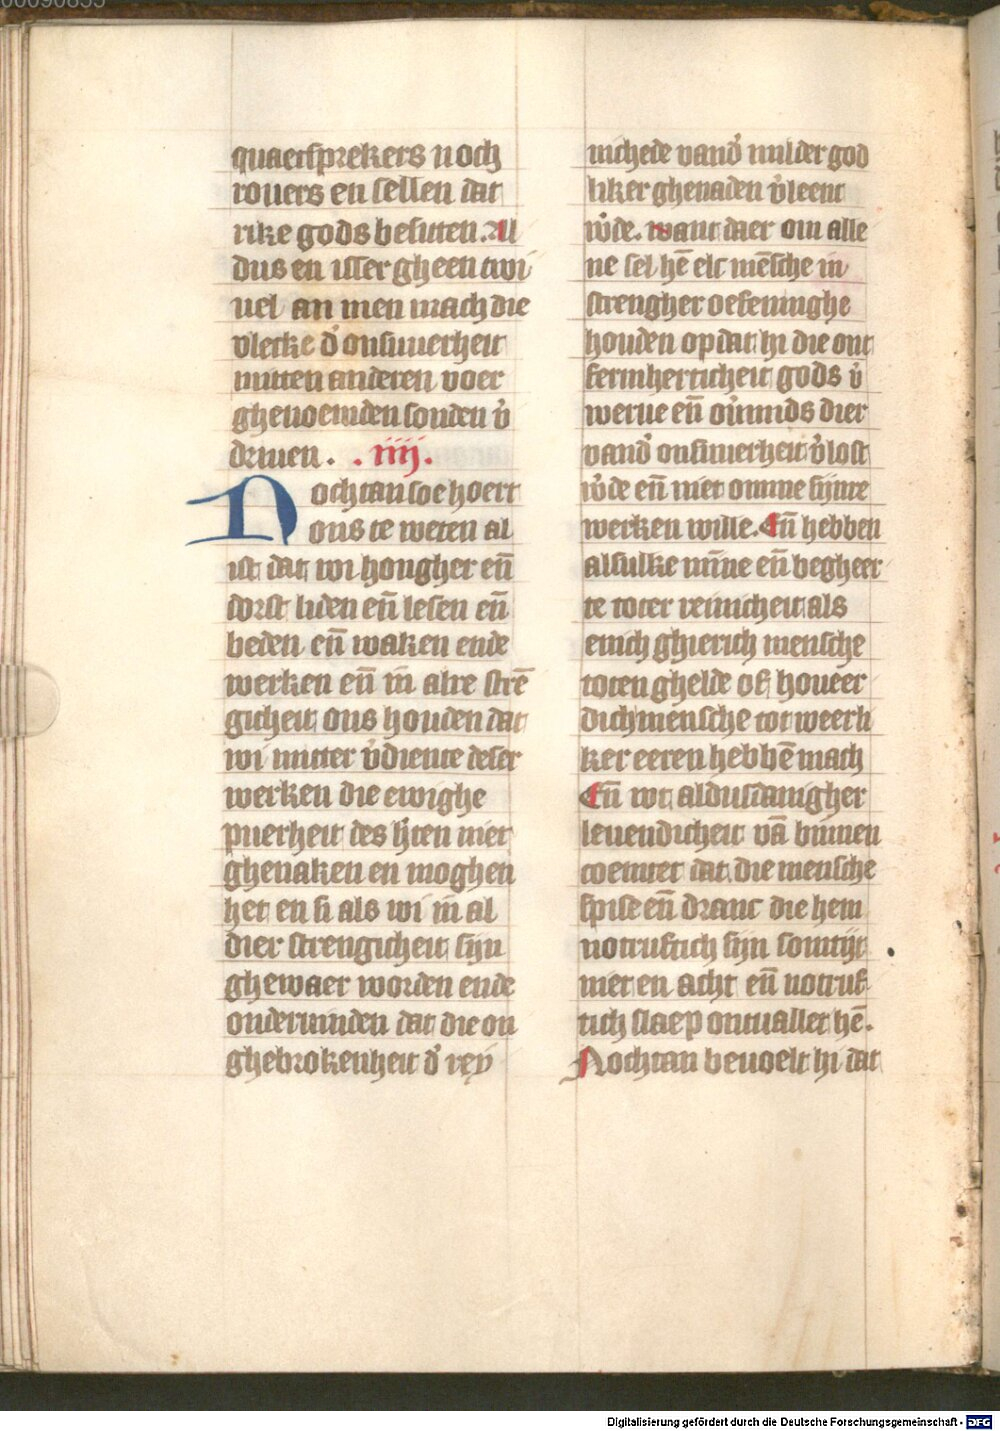 quaetsprekers noch
rouers en sellen dat
rike gods besitten. Al
dus en isser gheen twi
uel an men mach die
vlecke d' onsuuerheit
mitten anderen voer
ghenoemden sonden v'
driuen. . iiij.
Nochtan soe hoert
ons te weten al
ist dat wi hongher en̄
dorst liden en̄ lesen en̄
beden en̄ waken ende
werken en̄ in alre strē
gicheit ons houden dat
wi mitter v'diente deser
werken die ewighe
puerheit des h'ten niet
ghenaken en moghen
het en si als wi in al
dier strengicheit sijn
ghewaer worden ende
ondervinden dat die on
ghebrokenheit d' rey
nichede vand' milder god
liker ghenaden v'leent
w'de. want daer om alle
ne sel hē elc mēsche in
strengher oefeninghe
houden op dat hi die ont
fermherticheit gods v'
werue en̄ ou'mids dier
vand' onsuuerheit v'lost
w'de en̄ niet omme sijnre
werken wille. En̄ hebben
alsulke mīne en̄ begheer
te toter reinicheit als
enich ghierich mensche
toten ghelde of houeer
dich mensche tot weerli
ker eeren hebbē mach
En̄ wt aldusdanigher
leuendicheit vā binnen
coemet dat die mensche
spise en̄ dranc die hem
notruftich sijn somtijt
niet en acht en̄ notruf
tich slaep ontuallet hē.
Nochtan beuoelt hi dat
Digitalisierung gefördert durch die Deutsche Forschungsgemeinschaft - DFG